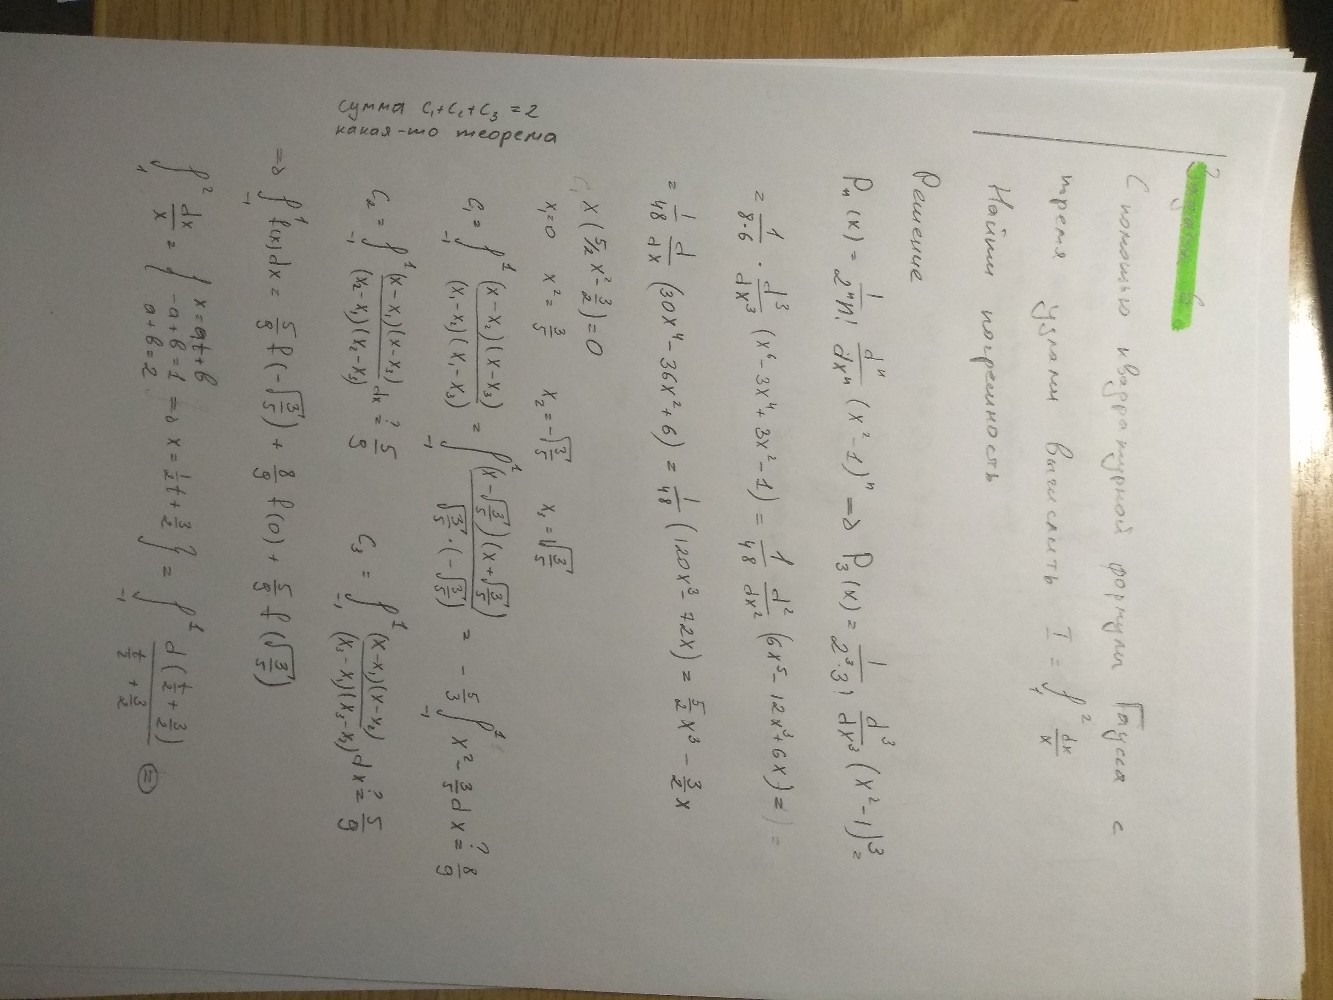 Задача 6.
С помощью квадратурной формулы Гаусса с
тремя узлами вычислить I = ∫₁² dx/x
Найти погрешность
Решение
Pₙ(x) = 1/(2ⁿn!) dⁿ/dxⁿ (x²-1)ⁿ => P₃(x) = 1/(2³·3!) d³/dx³ (x²-1)³ =
= 1/(8·6) · d³/dx³ (x⁶-3x⁴+3x²-1) = 1/48 d²/dx² (6x⁵-12x³+6x) =
= 1/48 d/dx (30x⁴-36x²+6) = 1/48 (120x³-72x) = 5/2 x³ - 3/2 x
x(5/2 x² - 3/2) = 0
x₁=0 x² = 3/5 x₂ = -√(3/5) x₃ = √(3/5)
сумма C₁+C₂+C₃ = 2
какая-то теорема
C₁ = ∫₋₁¹ (x-x₂)(x-x₃)/((x₁-x₂)(x₁-x₃)) = ∫₋₁¹ (x-√(3/5))(x+√(3/5))/(√(3/5)·(-√(3/5))) = -5/3 ∫₋₁¹ x² - 3/5 dx =? 8/9
C₂ = ∫₋₁¹ (x-x₁)(x-x₃)/((x₂-x₁)(x₂-x₃)) dx =? 5/9 C₃ = ∫₋₁¹ (x-x₁)(x-x₂)/((x₃-x₁)(x₃-x₂)) dx =? 5/9
=> ∫₋₁¹ f(x)dx = 5/9 f(-√(3/5)) + 8/9 f(0) + 5/9 f(√(3/5))
∫₁² dx/x = { x=at+b -a+b=1 a+b=2 => x = 1/2 t + 3/2 } = ∫₋₁¹ d(t/2 + 3/2)/(t/2 + 3/2) (=)